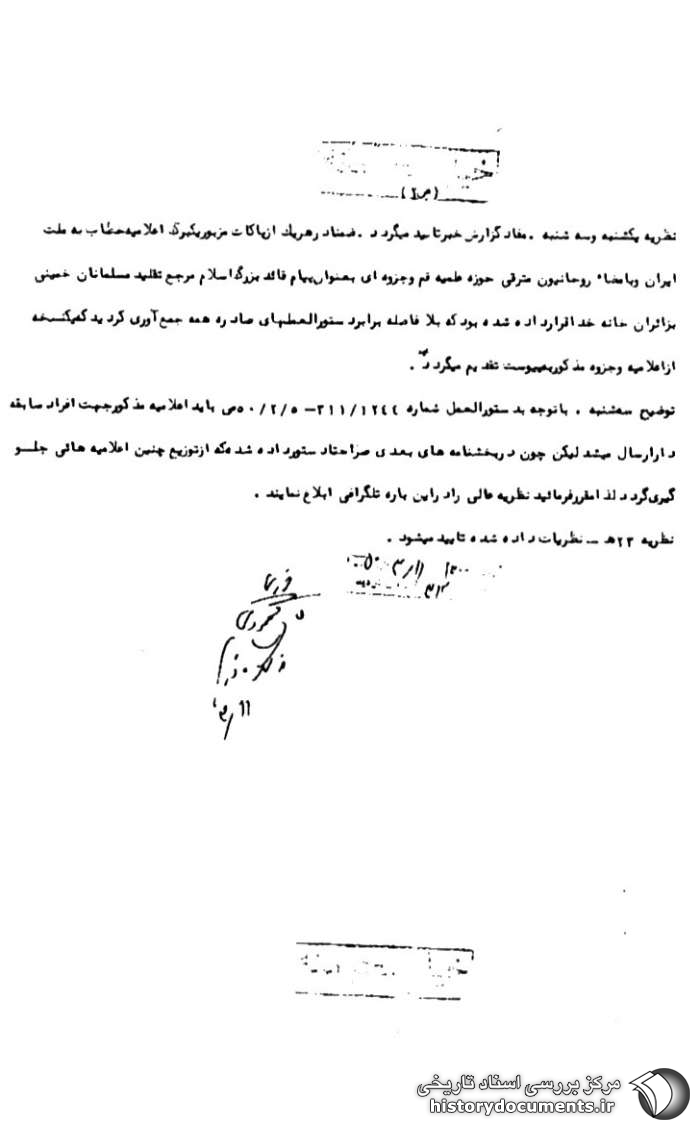 (ص۱)
نظریه یکشنبه وسه شنبه . مفاد گزارش خبر تایید میگردد . ضمنا در هریک از پاکات مزبور یکبرگ اعلامیه خطاب به ملت
ایران وبامضاء روحانیون مترقی حوزه علمیه قم وجزوه ای بعنوان پیام قائد بزرگ اسلام مرجع تقلید مسلمانان خمینی
بزائران خانه خدا قرار داده شده بود که بلا فاصله برابر دستورالعملهای صادره همه جمع آوری گردید که یکنسخه
از اعلامیه وجزوه مذکور بپیوست تقدیم میگردد .
توضیح سه شنبه . باتوجه بدستورالعمل شماره ۳۱۱/۱۲۴۴ – ۵۰/۲/۵ می باید اعلامیه مذکور جهت افراد سابقه
دار ارسال میشد لیکن چون در بخشنامه های بعدی صراحتا دستور داده شده که از توزیع چنین اعلامیه هائی جلـو
گیری گردد لذا مقرر فرمائید نظریه عالی را در این باره تلگرافی ابلاغ نمایند .
نظریه ۲۳ هـ ــ نظریات داده شده تایید میشود .
مرکز بررسی اسناد تاریخی
historydocuments.ir